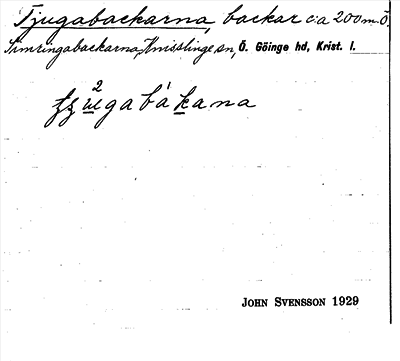 Tjugabackarna, backar c:a 200 m. Ö.
Simringabackarna, Hmisslinge sn, Ö. Göinge hd, Krist. l.
JOHN SVENSSON 1929